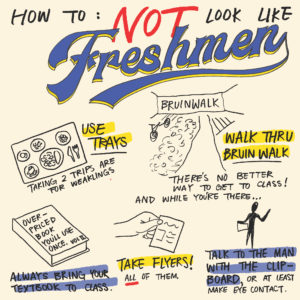 HOW TO: NOT LOOK LIKE
Freshmen
USE
TRAYS
TAKING 2 TRIPS ARE
FOR WEAKLINGS
BRUINWALK
WALK THRU
BRUIN WALK
THERE'S NO BETTER
WAY TO GET TO CLASS!
AND WHILE YOU'RE THERE...
OVER-
PRICED
BOOK
YOU'LL USE
ONCE.
ALWAYS BRING YOUR
TEXTBOOK TO CLASS.
TAKE FLYERS!
ALL OF THEM.
TALK TO THE MAN
WITH THE CLIP-
BOARD, OR AT LEAST
MAKE EYE CONTACT.